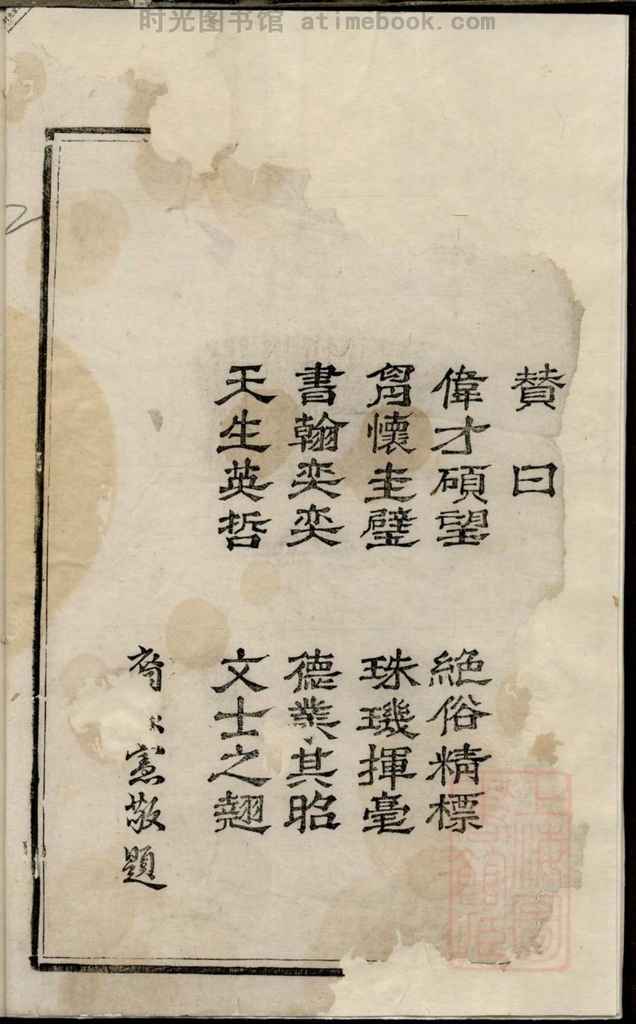 时光图书馆 atimebook.com
贊曰
偉才碩望 絶俗精標
胷懷圭璧 珠璣揮毫
書翰奕奕 德業其昭
天生英哲 文士之翹
憲敬題